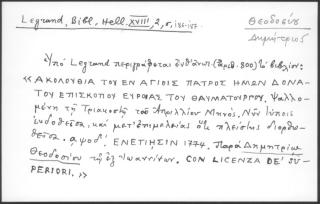 Legrand, Bibl. Hell. XVIII, 2, σ, 186-187.
Θεοδοσίου
Δημήτριος
Ὑπό Legrand περιγράφεται ἐνθ' ἀνωτ. (ἀριθ. 800) τό βιβλίον:
« ΑΚΟΛΟΥΘΙΑ ΤΟΥ ΕΝ ΑΓΙΟΙΣ ΠΑΤΡΟΣ ΗΜΩΝ ΔΟΝΑ-
ΤΟΥ ΕΠΙΣΚΟΠΟΥ ΕΥΡΟΙΑΣ ΤΟΥ ΘΑΥΜΑΤΟΥΡΓΟΥ. Ψαλλο-
μένη τῇ Τριακοστῇ τοῦ Ἀπριλλίου Μηνός. Νῦν τύποις
ἐκδοθεῖσα, καί μετ' ἐπιμελείας ὅτι πλείστης διορθω-
θεῖσα. αψοδ΄. ΕΝΕΤΙΗΣΙΝ 1774. Παρά Δημητρίῳ
Θεοδοσίου τῷ ἐξ Ἰωαννίνων. CON LICENZA DE' SU-
PERIORI. »